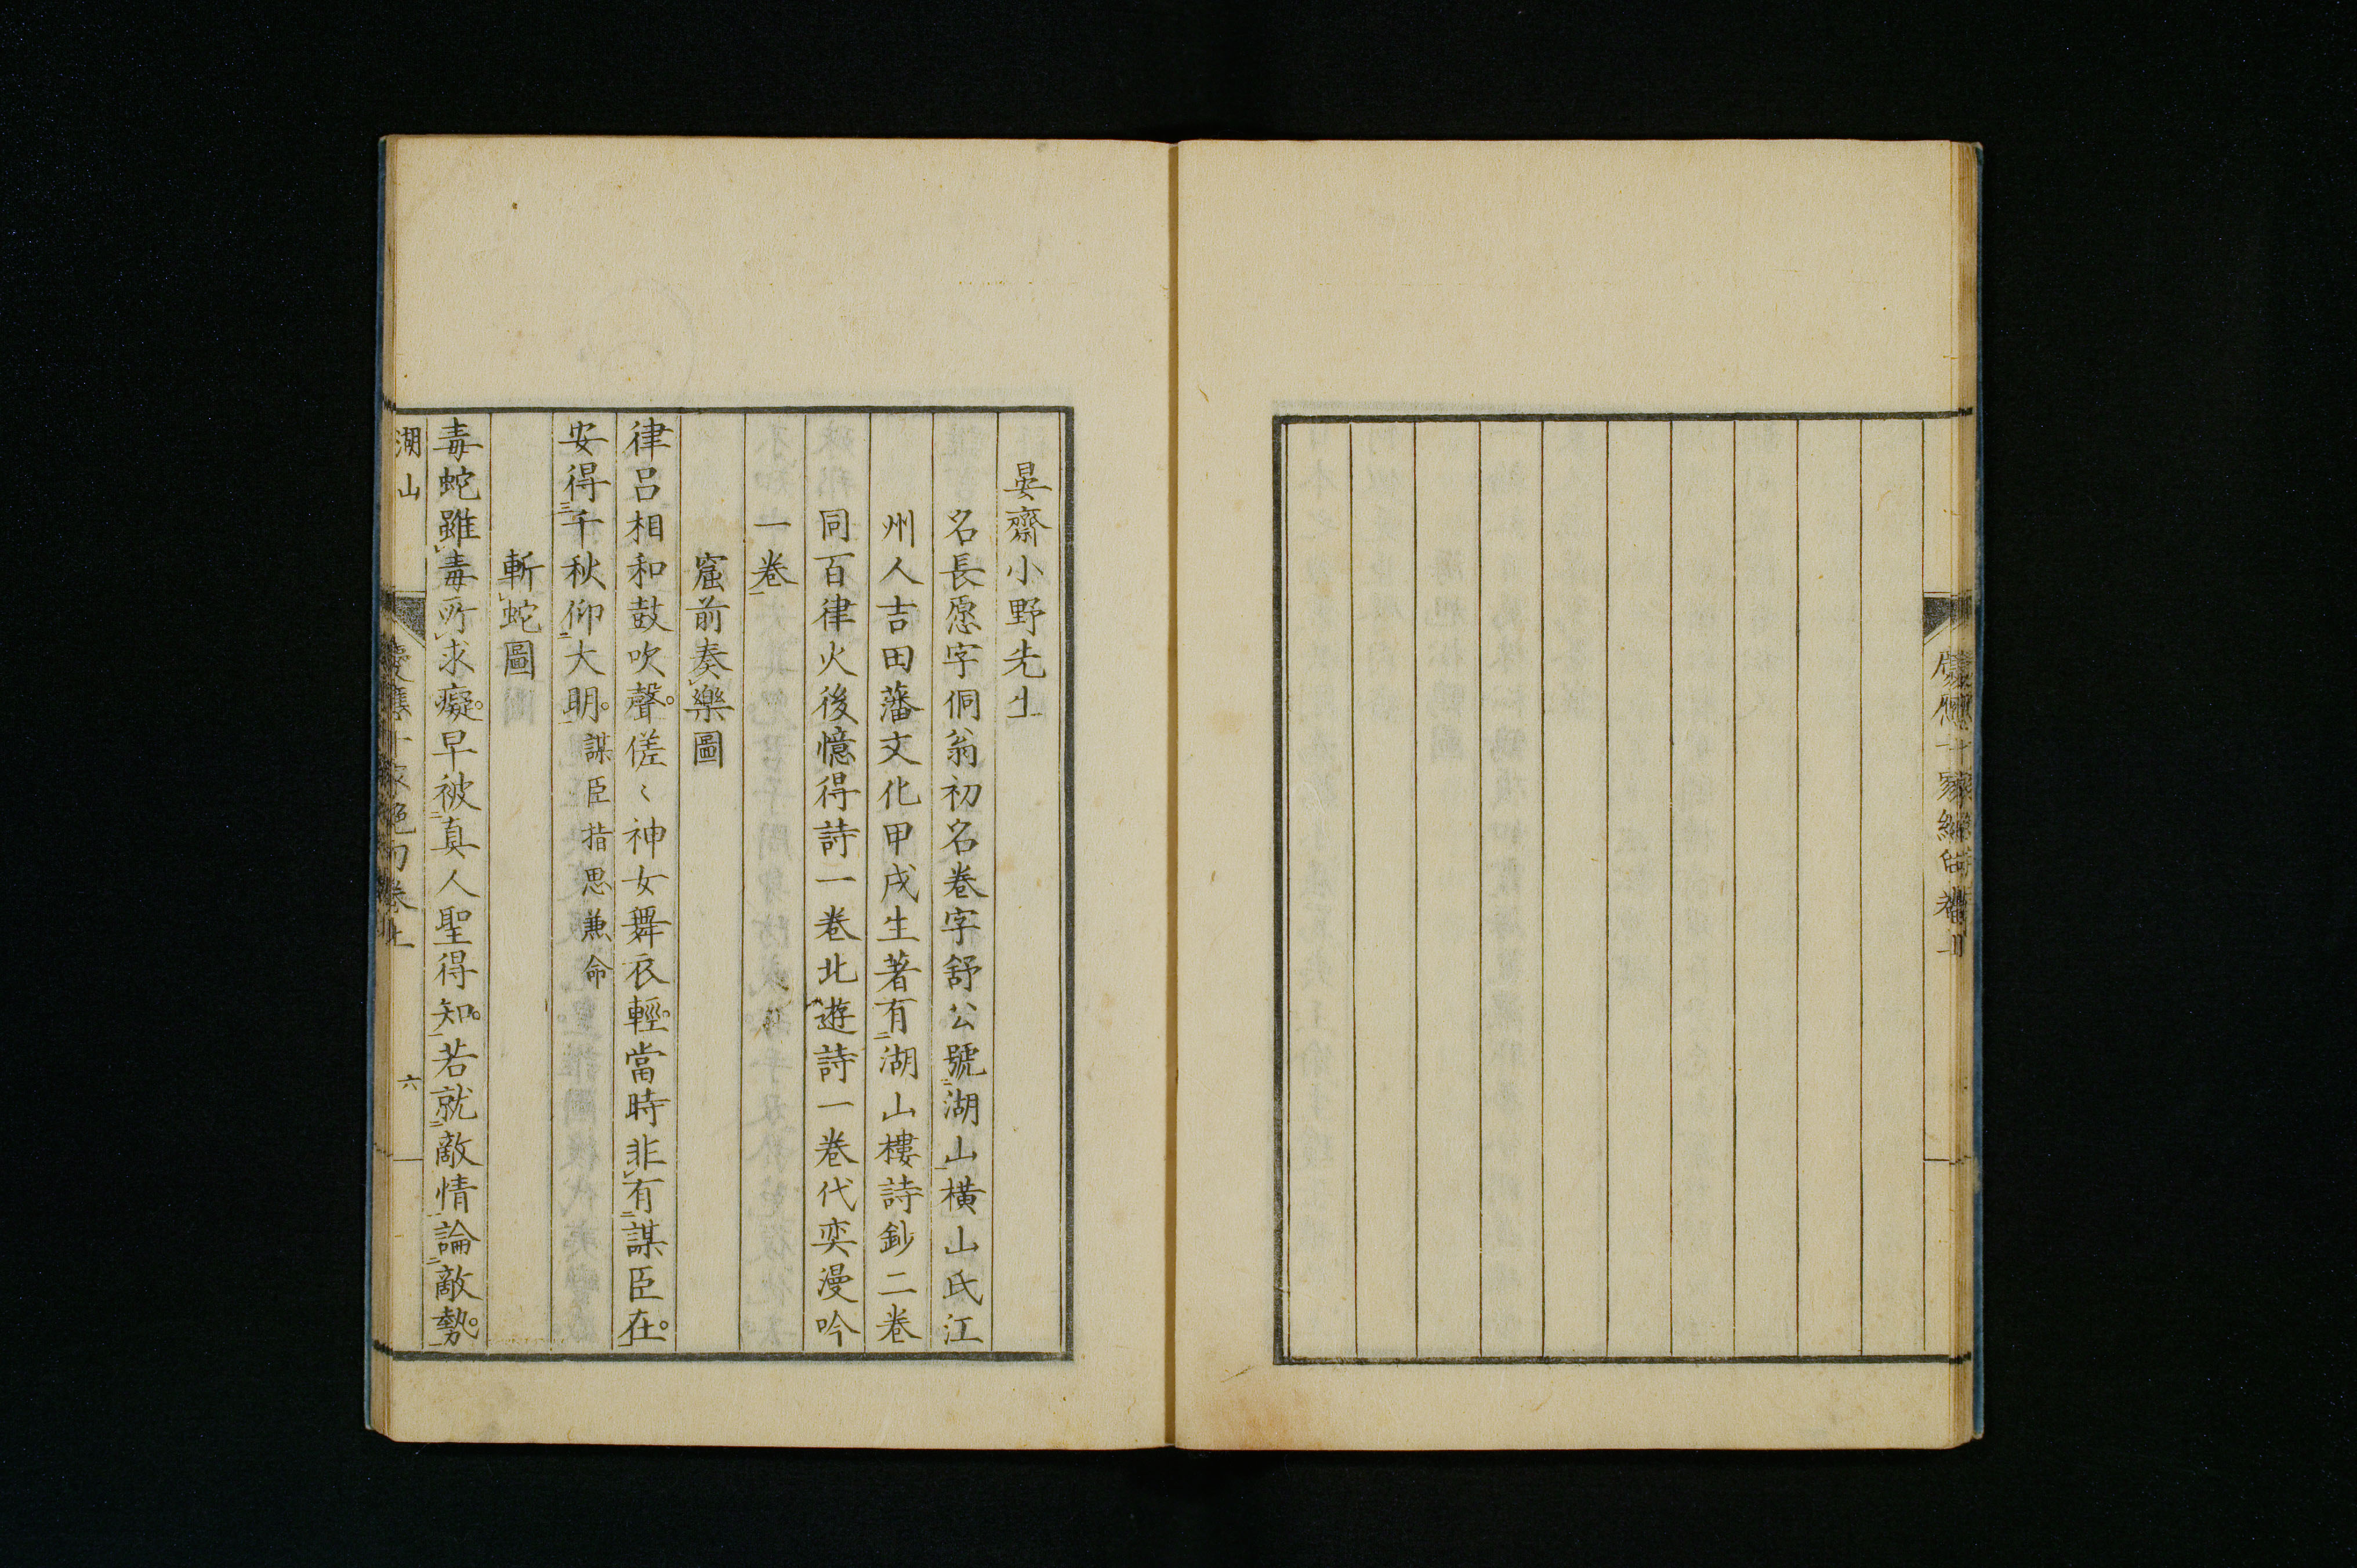 晏齋小野先生
名長愿字侗翁初名卷字舒公號湖山橫山氏江
州人吉田藩文化甲戌生著有湖山樓詩鈔二卷
同百律火後憶得詩一卷北遊詩一卷代奕漫吟
一卷
窟前奏樂圖
律呂相和鼓吹聲。傞〻神女舞衣輕。當時非有謀臣在。
安得千秋仰大明。謀臣指思兼命
斬蛇圖
毒蛇雖毒所求癡。早被真人聖得知。若就敵情論敵勢。
湖山
慶應十家絕句卷上
六